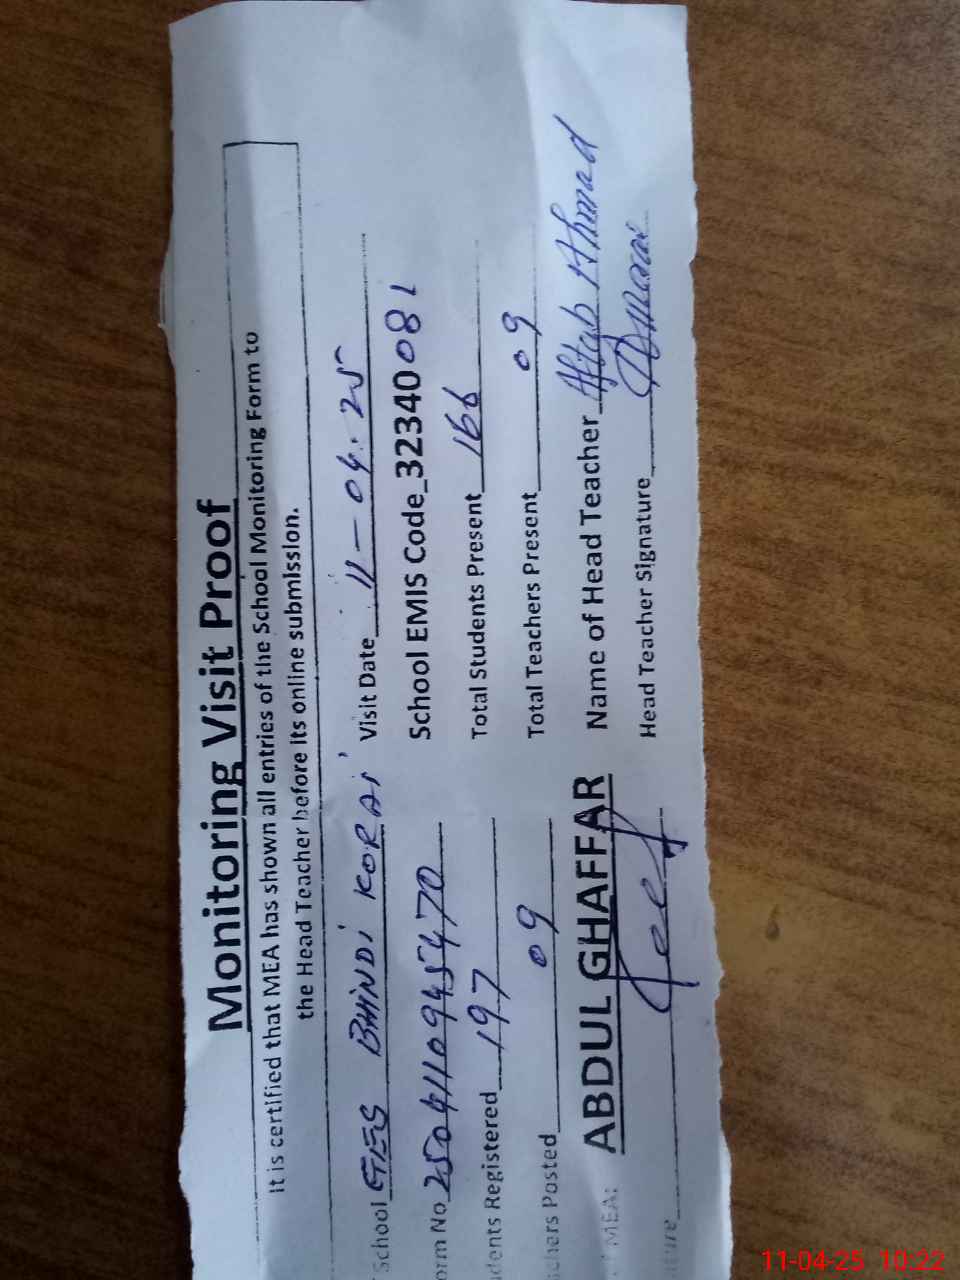 Monitoring Visit Proof
It is certified that MEA has shown all entries of the School Monitoring Form to
the Head Teacher before its online submission.
School GES BHINDI KORAI Visit Date 11-04-25
orm No 250411094545470 School EMIS Code_32340081
dents Registered 197 Total Students Present 166
chers Posted 09 Total Teachers Present 09
MEA: ABDUL GHAFFAR Name of Head Teacher Aftab Ahmad
Head Teacher Signature
11-04-25 10:22